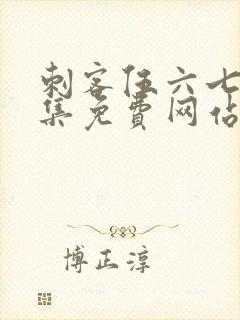 刺客伍六七
集免费网站
博正淳